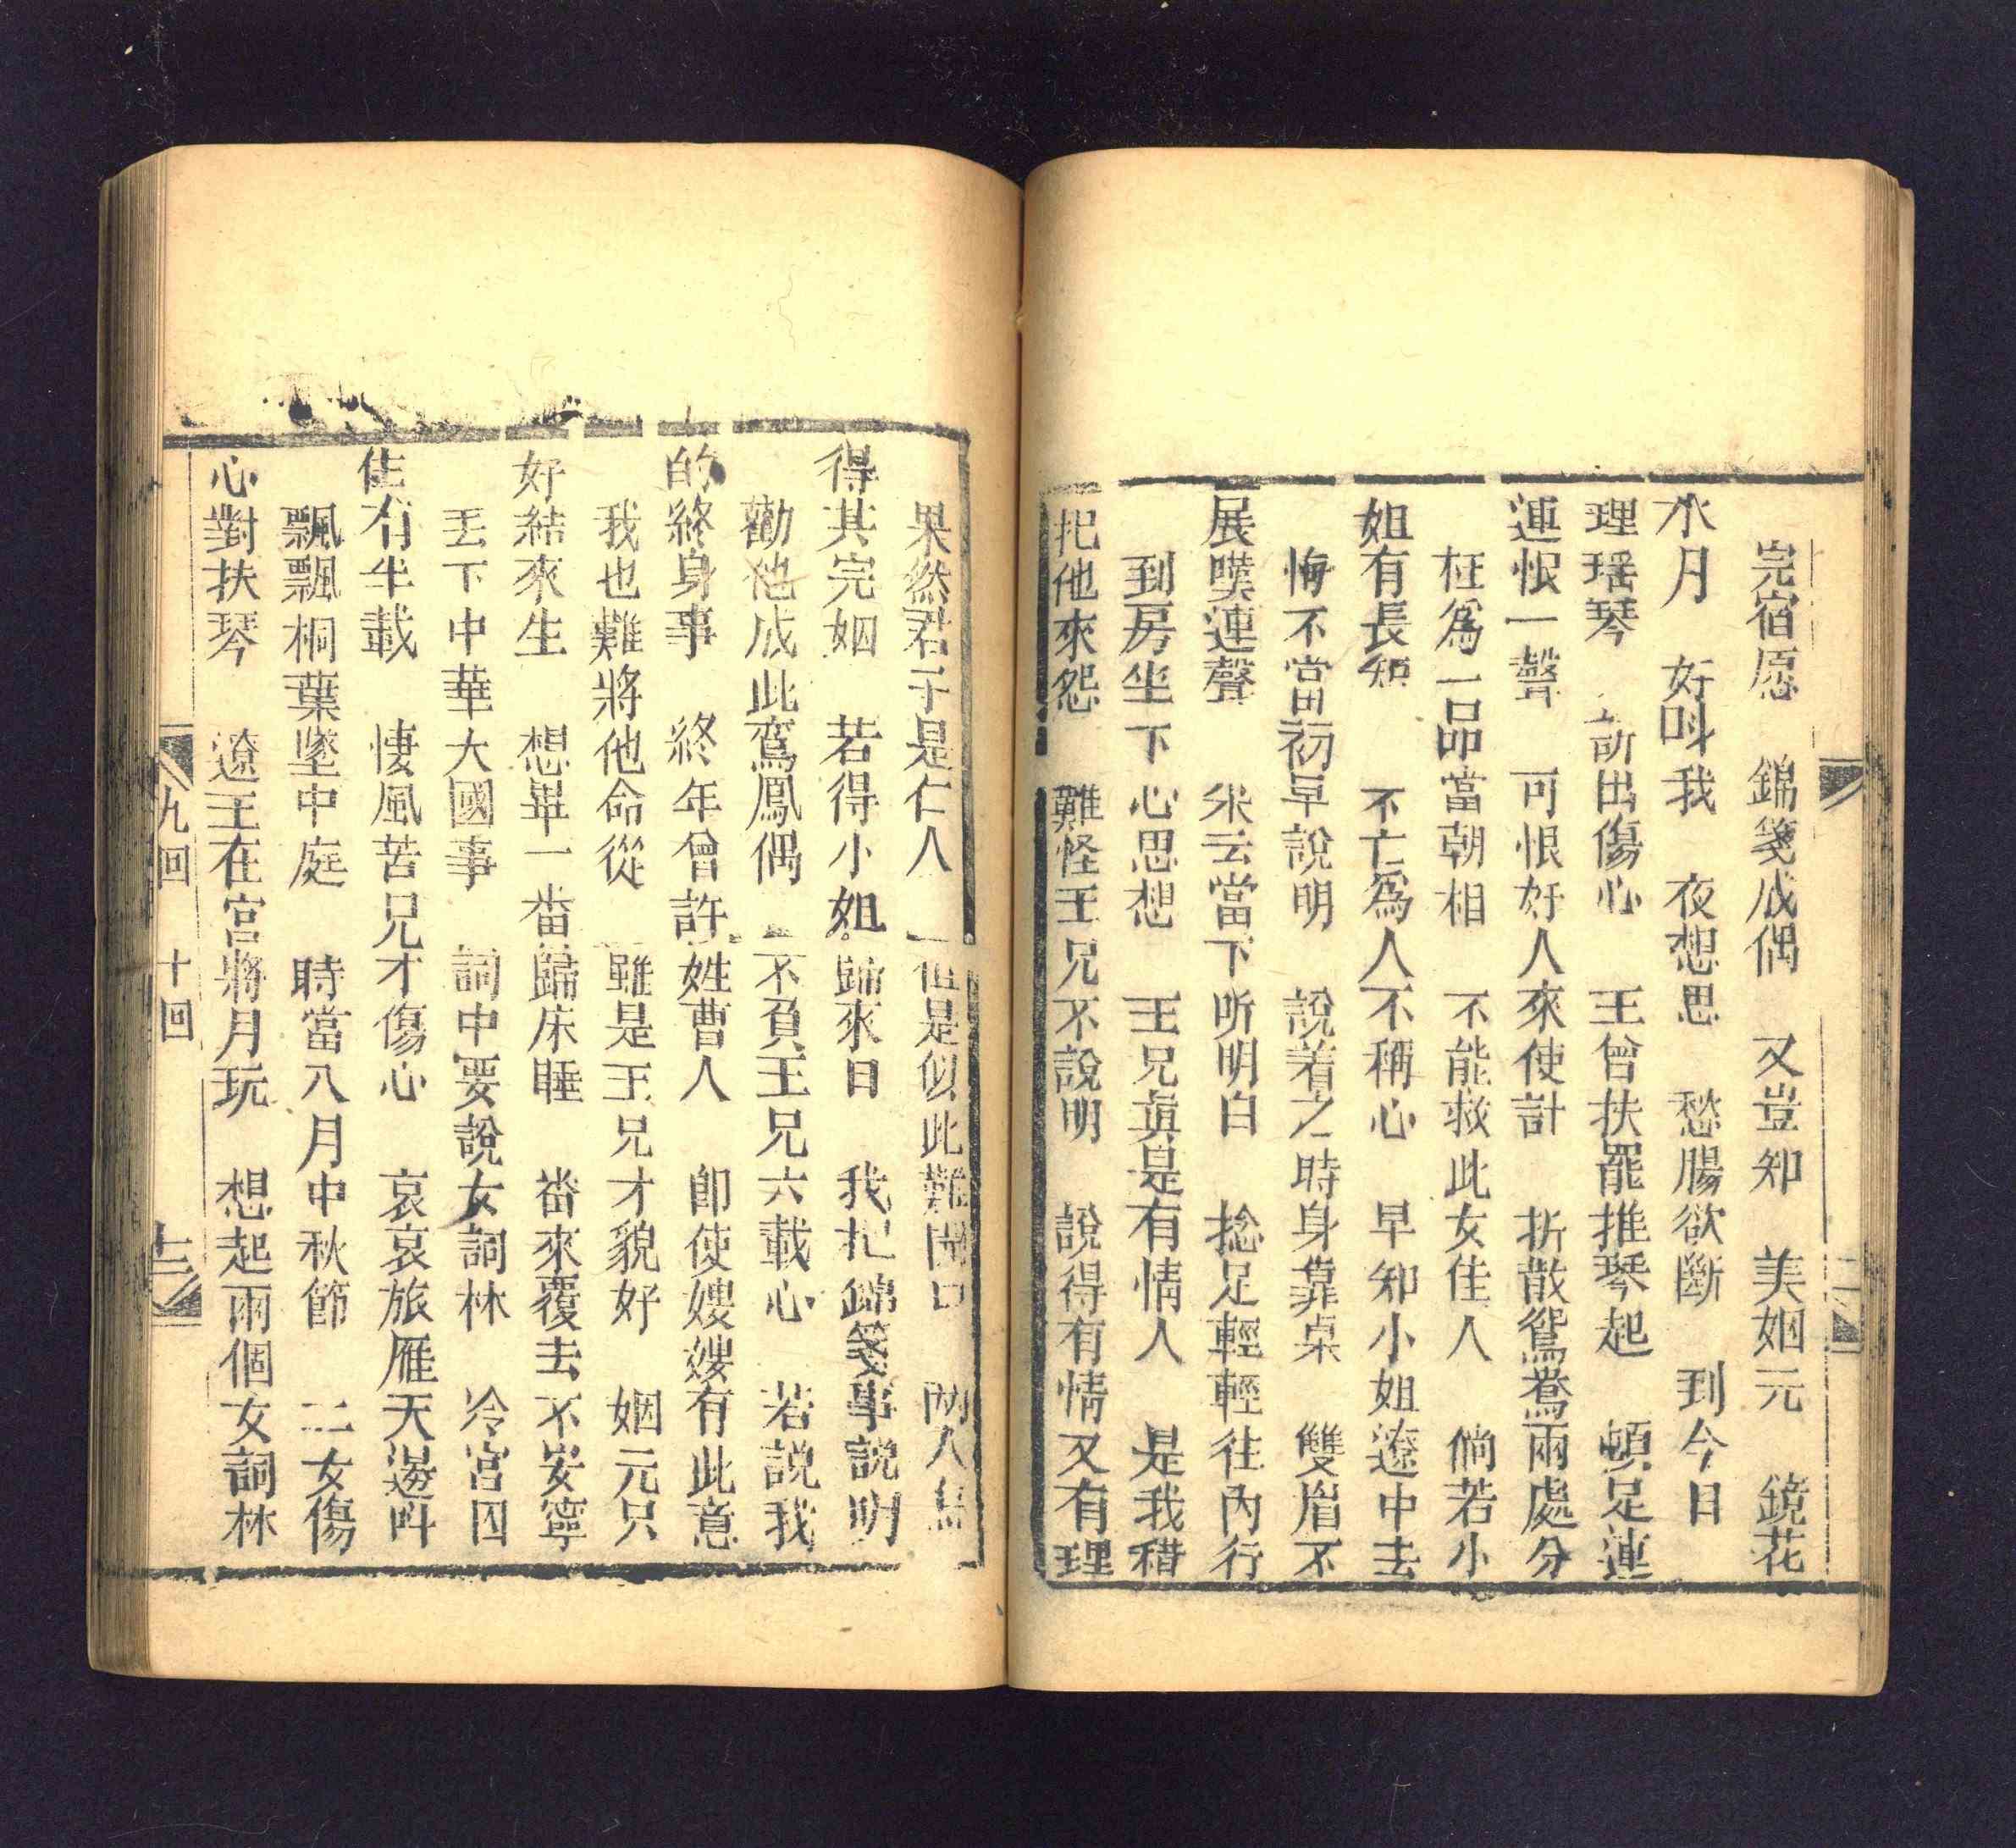 完宿愿 錦箋成偶 又豈知 美姻元 鏡花
水月 好叫我 夜想思 愁腸欲斷 到今日
理瑶琴 訴出傷心 王曾扶罷推琴起 頓足連
連恨一聲 可恨奸人來使計 折散鴛鴦兩處分
枉為一品當朝相 不能救此女佳人 倘若小
姐有長短 不亡為人不稱心 早知小姐遼中去
悔不當初早說明 說着之時身靠桌 雙眉不
展嘆連聲 朱云當下听明白 捻足輕輕往內行
到房坐下心思想 王兄真是有情人 是我錯
把他來怨 難怪王兄不說明 說得有情又有理
果然君子是仁人 但是似此難開口 兩人焉
得其完姻 若得小姐歸來日 我把錦箋事說明
勸他成此鸞鳳偶 不負王兄六載心 若説我
的終身事 終年曾許姓曹人 即使嫂嫂有此意
我也難將他命從 雖是王兄才貌好 姻元只
好結來生 想畢一番歸床睡 畨來覆去不安寧
丟下中華大國事 詞中要說女詞林 冷宮囚
隹有半載 悽風苦兄才傷心 哀哀旅雁天邊叫
飄飄桐葉墜中庭 時當八月中秋節 二女傷
心對扶琴 遼王在宮將月玩 想起兩個女詞林
九回 十回 十二